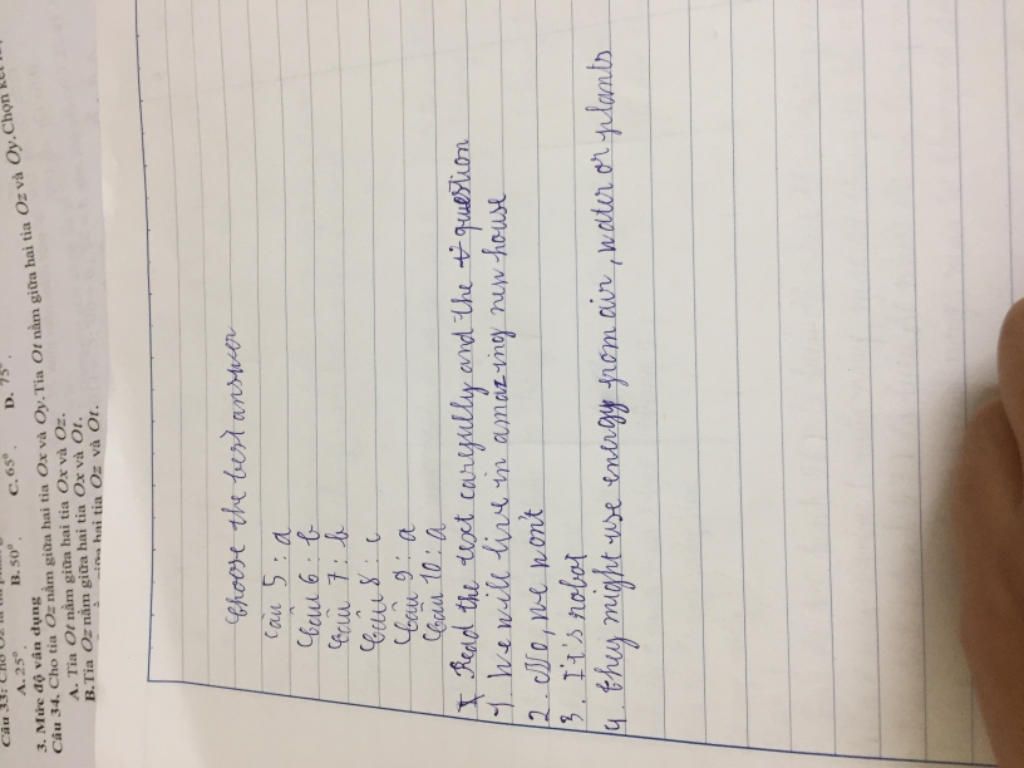 Câu 33: Cho Oz là
A. 25°. B. 50°. C. 65°. D. 75°.
3. Mức độ vận dụng
Câu 34. Cho tia Oz nằm giữa hai tia Ox và Oy. Tia Ot nằm giữa hai tia Oz và Oy. Chọn
A. Tia Ot nằm giữa hai tia Ox và Oz.
B. Tia Oz nằm giữa hai tia Ox và Ot.
giữa hai tia Oz và Ot.
Choose the best answer
Câu 5 : a
Câu 6 : b
Câu 7 : b
Câu 8 : c
Câu 9 : a
Câu 10 : a
I Read the text carefully and the question
1. We will live in amazing new house
2. No, we won't
3. It's robot
4. they might use energy from air, water or plants